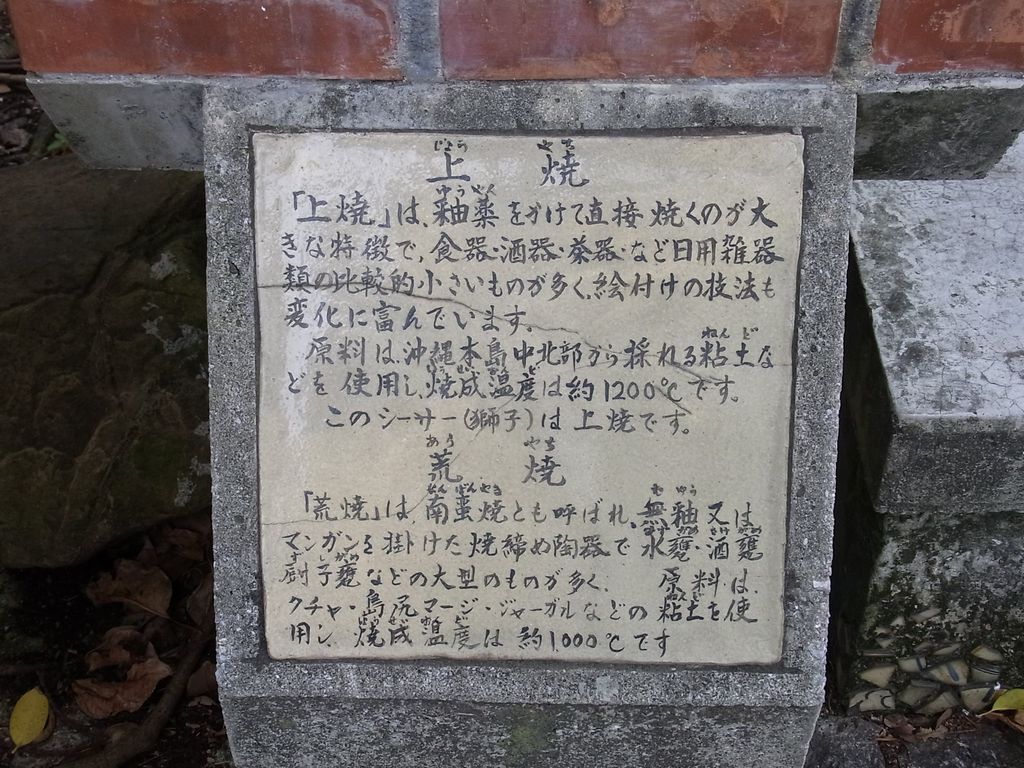 上焼
「上焼」は、釉薬をかけて直接焼くのが大
きな特徴で、食器・酒器・茶器・など日用雑器
類の比較的小さいものが多く、絵付けの技法も
変化に富んでいます。
原料は、沖縄本島中北部から採れる粘土な
どを使用し、焼成温度は約1200℃です。
このシーサー(獅子)は上焼です。
荒焼
「荒焼」は、南蛮焼とも呼ばれ、無釉又は
マンガンを掛けた焼締め陶器で水甕・酒甕
厨子甕などの大型のものが多く、原料は、
クチャ・島尻マージ・ジャーガルなどの粘土を使
用し、焼成温度は約1000℃です